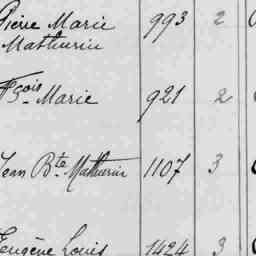 Pierre Marie 993 2
Mathurin
Fçois Marie 921 2
Jean Bte Mathurin 1107 3
Eugène Louis 1424 3